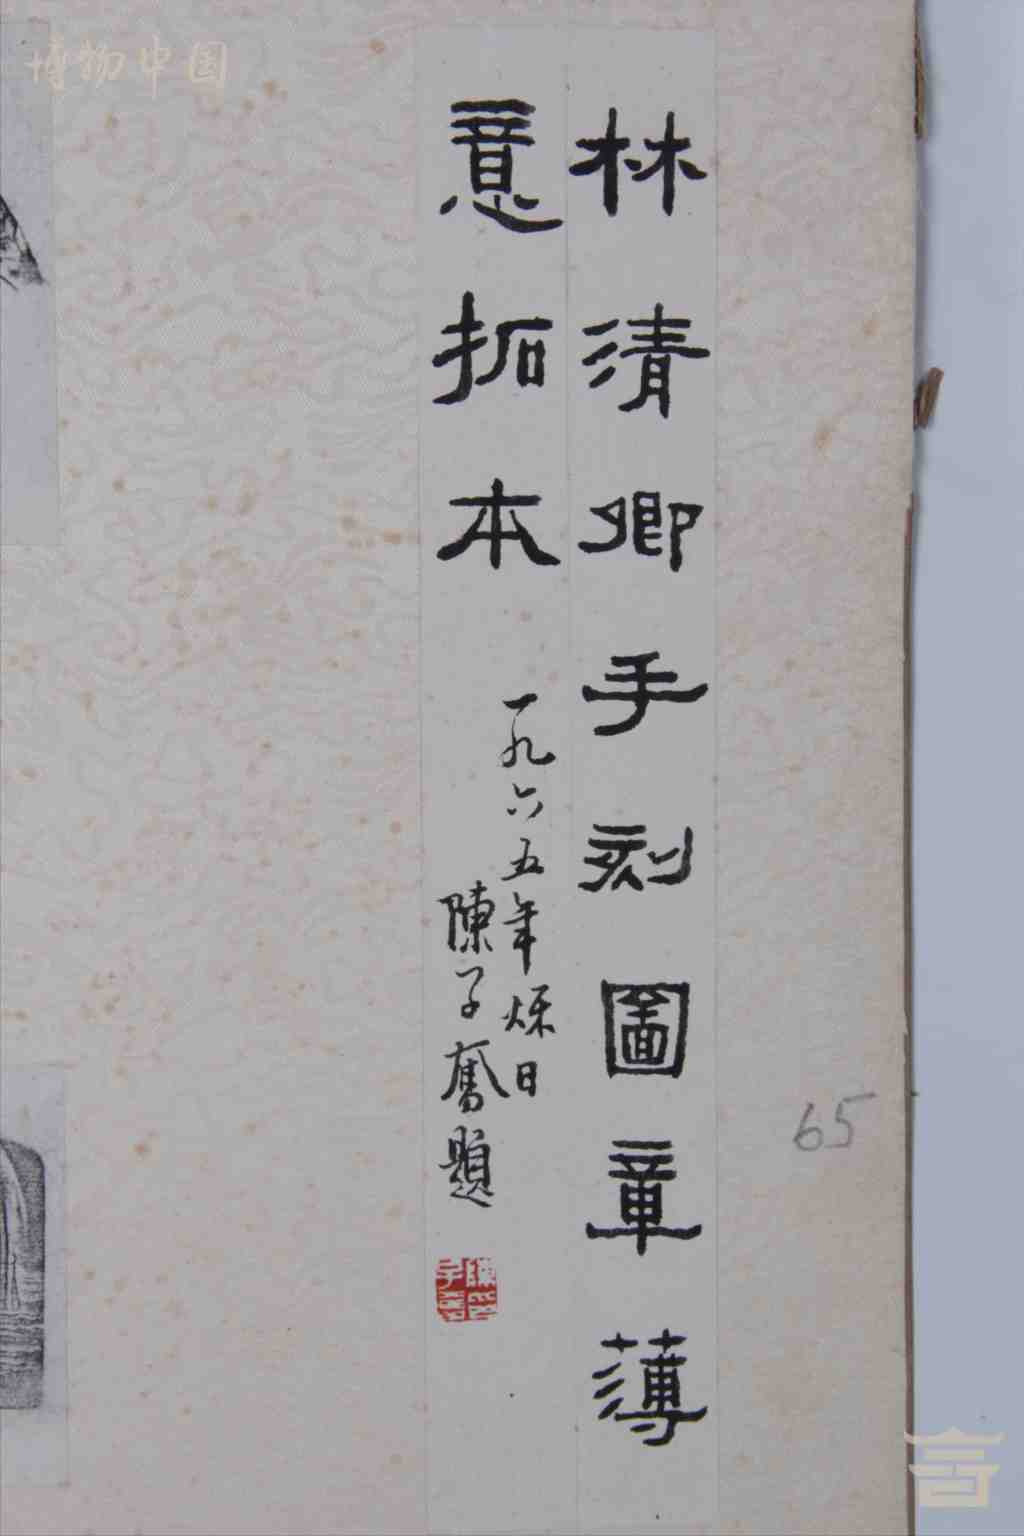 林清卿手刻圖章薄
意拓本
一九六五年烁日
陳子奮題
65
博物中国